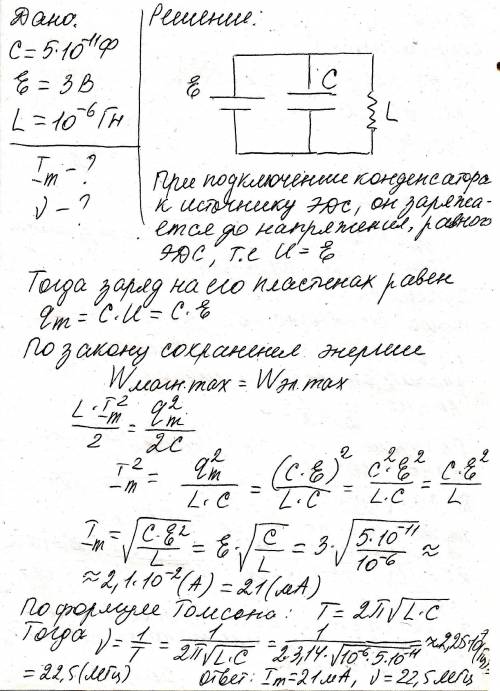 Дано. Решение:
C = 5·10⁻¹¹Ф
Ɛ = 3В
L = 10⁻⁶Гн
I_m - ?
ν - ?
Ɛ C L
При подключении конденсатора
к источнику ЭДС, он заряжа-
ется до напряжения, равного
ЭДС, т.е U = Ɛ
Тогда заряд на его пластинах равен
q_m = C·U = C·Ɛ
По закону сохранения энергии
W магн.max = W эл.max
L·I_m²/2 = q_m²/2C
I_m² = q_m²/L·C = (C·Ɛ)²/L·C = C²·Ɛ²/L·C = C·Ɛ²/L
I_m = √(C·Ɛ²/L) = Ɛ·√(C/L) = 3·√(5·10⁻¹¹/10⁻⁶) ≈
≈ 2,1·10⁻²(А) = 21(мА)
По формуле Томсона: T = 2π√L·C
Тогда ν = 1/T = 1/2π√L·C = 1/2·3,14·√10⁻⁶·5·10⁻¹¹ ≈ 2,25·10⁷(Гц)=
= 22,5(МГц) Ответ: I_m = 21мА, ν = 22,5МГц